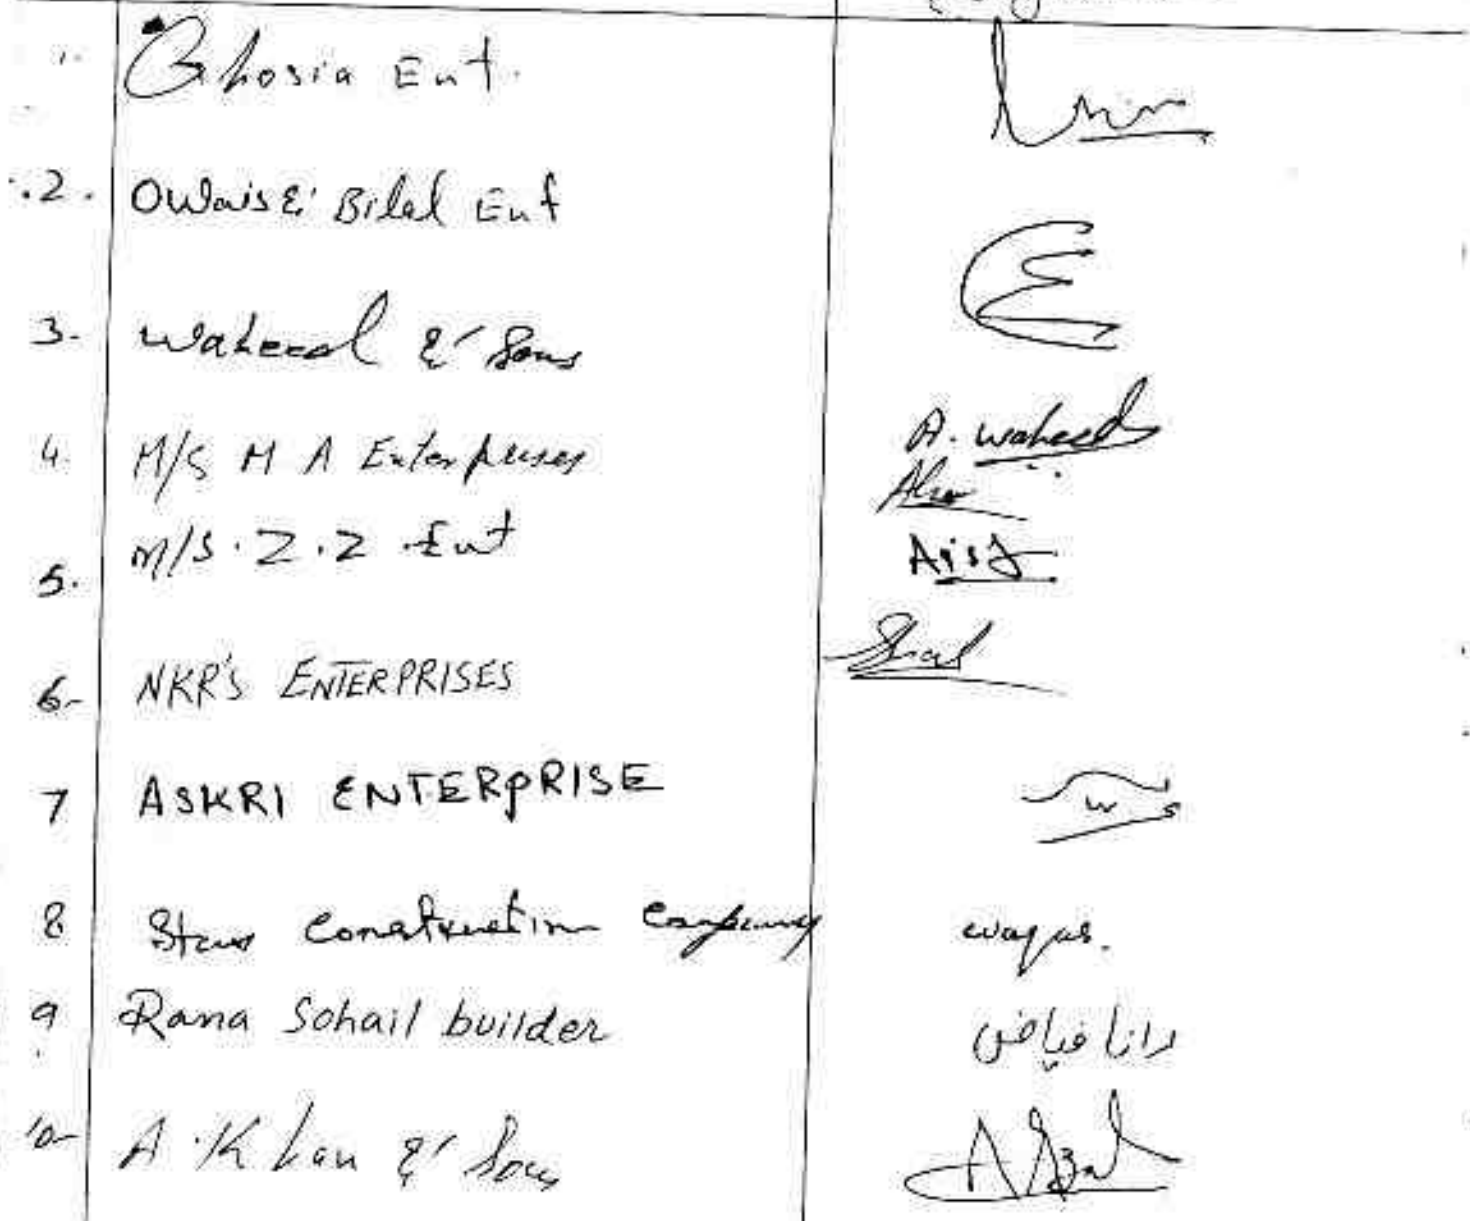 1. Ghosia Ent.
2. Owais & Bilal Ent
3- Waheed & Sons
A. Waheed
4. M/S M A Enterprises
5. M/S. Z.Z. Ent
6- NKR'S ENTERPRISES
7 ASKRI ENTERPRISE
w s
8 Star Construction Company waqas.
9 Rana Sohail builder رانا فیاض
10- A. Khan & Sons Afzal